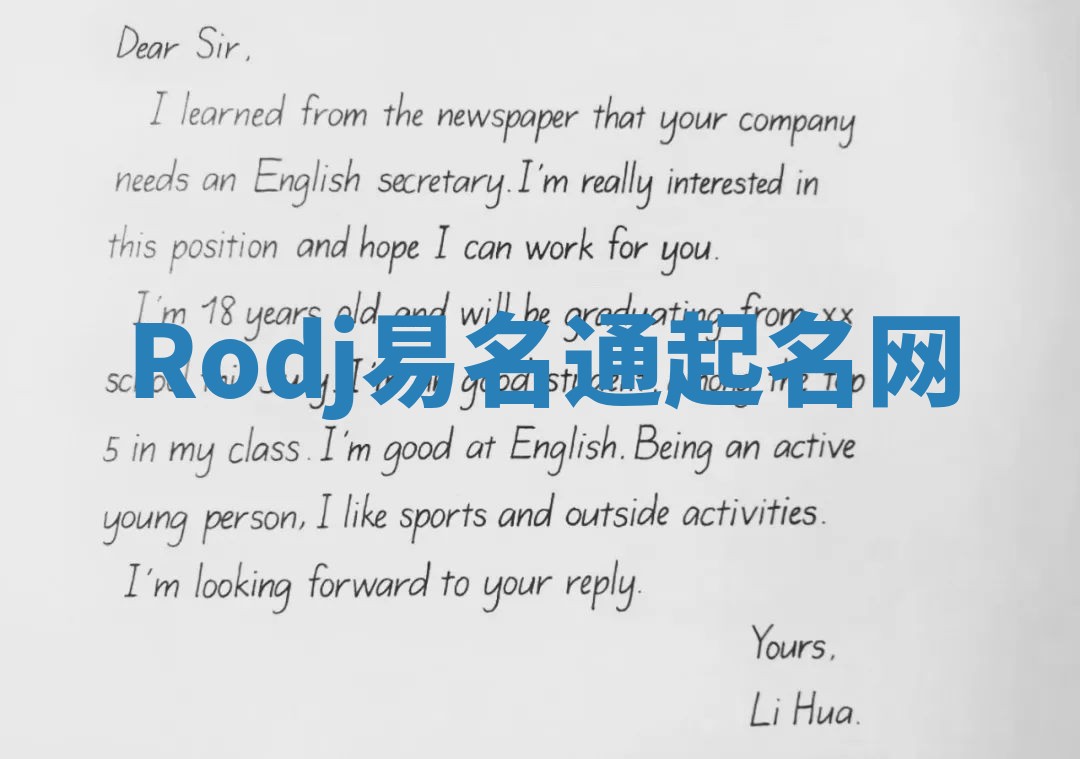 Dear Sir,
I learned from the newspaper that your company
needs an English secretary. I'm really interested in
this position and hope I can work for you.
I'm 18 years old and will be graduating from xx
Rodj易名通起名网
school this July. I'm a good student, among the top
5 in my class. I'm good at English. Being an active
young person, I like sports and outside activities.
I'm looking forward to your reply.
Yours,
Li Hua.